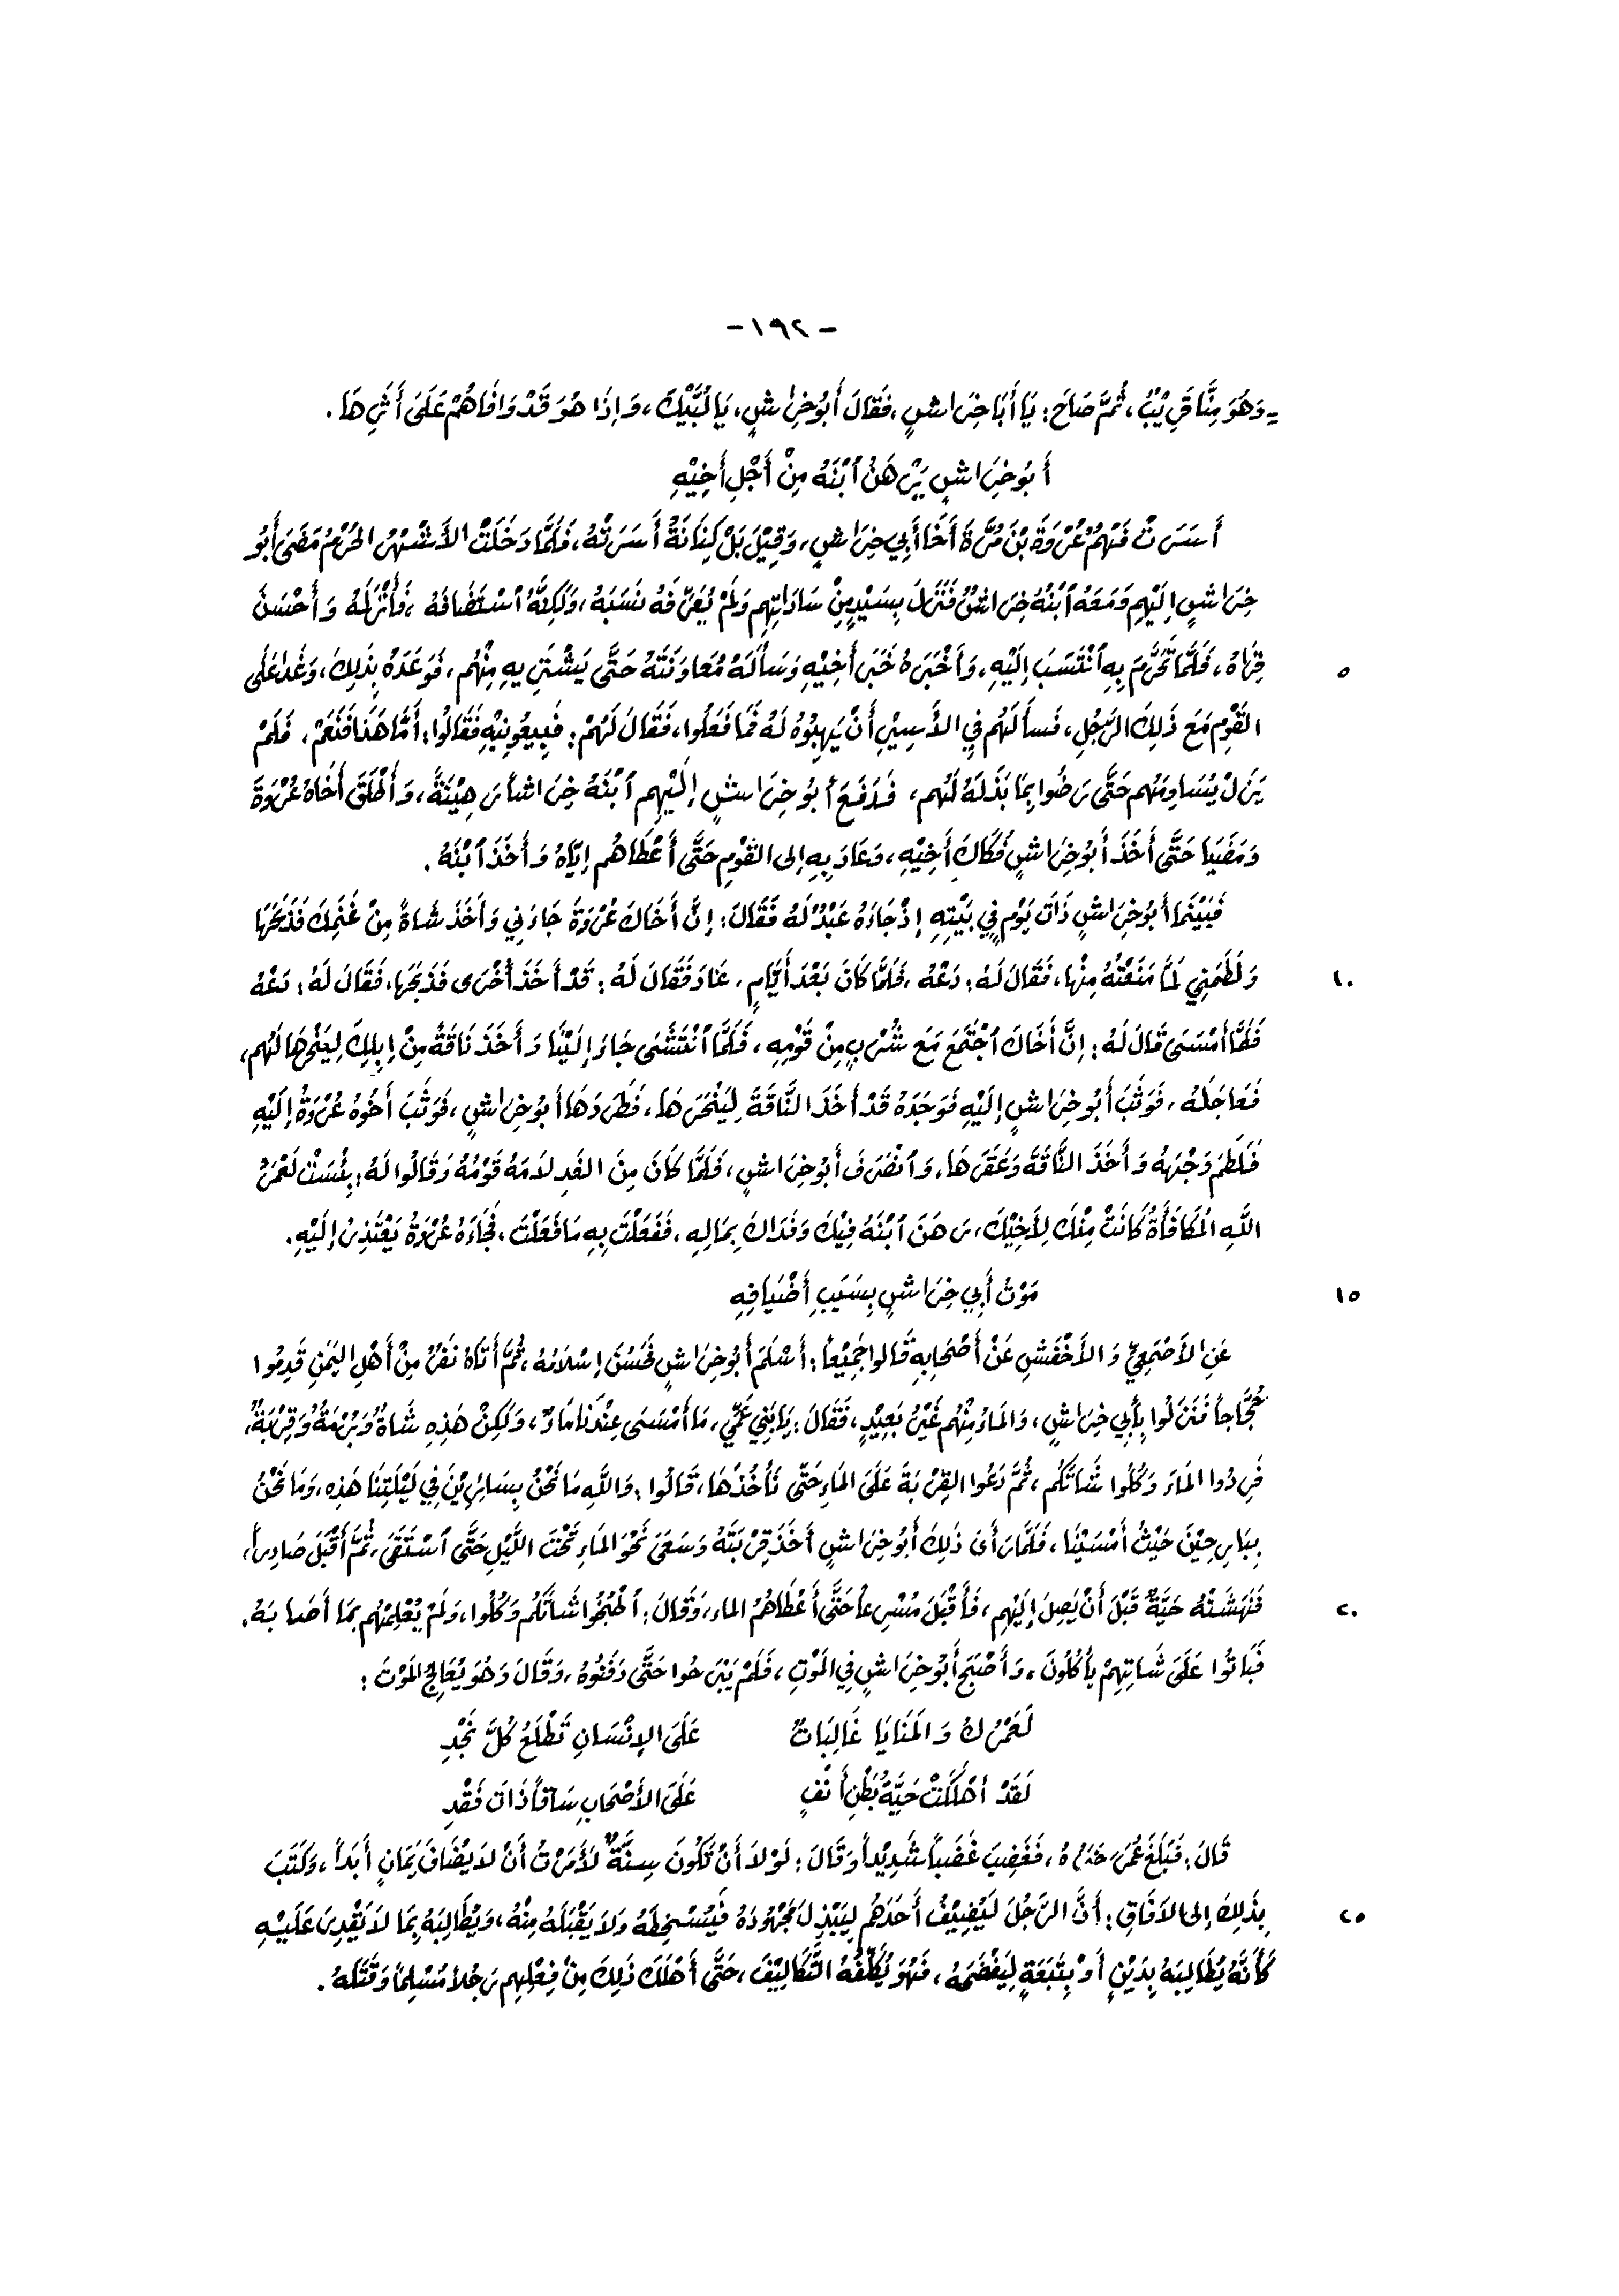 -١٩٢-
ـ وَهُوَ مِنَّا قَرِيْبٌ، ثُمَّ صَاحَ: يَا أَبَا خِرَاشٍ، فَقَالَ أَبُو خِرَاشٍ، يَا لَبَّيْكَ، وَإِذَا هُوَ قَدْ وَافَاهُمْ عَلَى أَثَرِهَا.
أَبُو خِرَاشٍ يَرْهَنُ ٱبْنَهُ مِنْ أَجْلِ أَخِيْهِ
أَسَرَتْ فَهْمُ عُرْوَةَ بْنَ مُرَّةَ أَخَا أَبِي خِرَاشٍ، وَقِيْلَ بَلْ كِنَانَةُ أَسَرَتْهُ، فَلَمَّا دَخَلَتْ الأَشْهُرُ الحُرُمُ مَضَى أَبُو
خِرَاشٍ إِلَيْهِم وَمَعَهُ ٱبْنُهُ خِرَاشٌ فَنَزَلَ بِسَيِّدٍ مِنْ سَادَاتِهِم وَلَمْ يُعَرِّفهُ نَسَبَهُ، وَلَكِنَّهُ ٱسْتَضَافَهُ، فَأَنْزَلَهُ وَأَحْسَنَ
٥ قِرَاهُ، فَلَمَّا تَحَرَّمَ بِهِ ٱنْتَسَبَ إِلَيْهِ، وَأَخْبَرَهُ خَبَرَ أَخِيْهِ وَسَأَلَهُ مُعَاوَنَتَهُ حَتَّى يَشْتَرِيهِ مِنْهُم، فَوَعَدَهُ بِذَلِكَ، وَغَدَا عَلَى
القَوْمِ مَعَ ذَلِكَ الرَّجُلِ، فَسَأَلَهُم فِي الأَسِيْرِ أَنْ يَهِبُوهُ لَهُ فَمَا فَعَلُوا، فَقَالَ لَهُمْ: فَبِيعُونِيْهِ فَقَالُوا: أَمَّا هَذَا فَنَعَمْ، فَلَمْ
يَزَلْ يُسَاوِمُهُم حَتَّى رَضُوا بِمَا بَذَلَهُ لَهُم، فَدَفَعَ أَبُو خِرَاشٍ إِلَيْهِم ٱبْنَهُ خِرَاشاً رَهِيْنَةً، وَأَطْلَقَ أَخَاهُ عُرْوَةَ
وَمَضَيَا حَتَّى أَخَذَ أَبُو خِرَاشٍ فُكَاكَ أَخِيْهِ، وَعَادَ بِهِ إِلى القَوْمِ حَتَّى أَعْطَاهُم إِيَّاهُ وَأَخَذَ ٱبْنَهُ.
فَبَيْنَمَا أَبُو خِرَاشٍ ذَاتَ يَوْمٍ فِي بَيْتِهِ إِذْ جَاءَهُ عَبْدٌ لَهُ فَقَالَ: إِنَّ أَخَاكَ عُرْوَةَ جَاءَنِي وَأَخَذَ شَاةً مِنْ غَنَمِكَ فَذَبَحَهَا
١٠ وَلَطَمَنِي لَمَّا مَنَعْتُهُ مِنْهَا، فَقَالَ لَهُ: دَعْهُ، فَلَمَّا كَانَ بَعْدَ أَيَّامٍ، عَادَ فَقَالَ لَهُ: قَدْ أَخَذَ أُخْرَى فَذَبَحَهَا، فَقَالَ لَهُ: دَعْهُ
فَلَمَّا أَمْسَى قَالَ لَهُ: إِنَّ أَخَاكَ ٱجْتَمَعَ مَعَ شَرْبٍ مِنْ قَوْمِهِ، فَلَمَّا ٱنْتَشَى جَاءَ إِلَيْنَا وَأَخَذَ نَاقَةً مِنْ إِبِلِكَ لِيَنْحَرَهَا لَهُم،
فَعَاجِلْهُ، فَوَثَبَ أَبُو خِرَاشٍ إِلَيْهِ فَوَجَدَهُ قَدْ أَخَذَ النَّاقَةَ لِيَنْحَرَهَا، فَطَرَدَهَا أَبُو خِرَاشٍ، فَوَثَبَ أَخُوهُ عُرْوَةُ إِلَيْهِ
فَلَطَمَ وَجْهَهُ وَأَخَذَ النَّاقَةَ وَعَقَرَهَا، وَٱنْصَرَفَ أَبُو خِرَاشٍ، فَلَمَّا كَانَ مِنَ الغَدِ لَامَهُ قَوْمُهُ وَقَالُوا لَهُ: بِئْسَتْ لَعَمْرُ
اللَّهِ المُكَافَأَةُ كَانَتْ مِنْكَ لِأَخِيْكَ، رَهَنَ ٱبْنَهُ فِيْكَ وَفَدَاكَ بِمَالِهِ، فَفَعَلْتَ بِهِ مَا فَعَلْتَ، فَجَاءَهُ عُرْوَةُ يَعْتَذِرُ إِلَيْهِ.
١٥ مَوْتُ أَبِي خِرَاشٍ بِسَبَبِ أَضْيَافِهِ
عَنِ الأَصْمَعِيِّ وَالأَخْفَشِ عَنْ أَصْحَابِهِ قَالوا جَمِيْعاً: أَسْلَمَ أَبُو خِرَاشٍ فَحَسُنَ إِسْلَامُهُ، ثُمَّ أَتَاهُ نَفَرٌ مِنْ أَهْلِ اليَمَنِ قَدِمُوا
حُجَّاجاً فَنَزَلُوا بِأَبِي خِرَاشٍ، وَالمَاءُ مِنْهُم غَيْرُ بَعِيْدٍ، فَقَالَ: يَا بَنِي عَمِّي، مَا أَمْسَى عِنْدَنَا مَاءٌ، وَلَكِنْ هَذِهِ شَاةٌ وَبُرْمَةٌ وَقِرْبَةٌ،
فَرِدُوا المَاءَ وَكُلُوا شَاتَكُم، ثُمَّ دَعُوا القِرْبَةَ عَلَى المَاءِ حَتَّى نَأْخُذَهَا، قَالُوا: وَاللَّهِ مَا نَحْنُ بِسَائِرِيْنَ فِي لَيْلَتِنَا هَذِهِ، وَمَا نَحْنُ
بِبَارِحِيْنَ حَيْثُ أَمْسَيْنَا، فَلَمَّا رَأَى ذَلِكَ أَبُو خِرَاشٍ أَخَذَ قِرْبَتَهُ وَسَعَى نَحْوَ المَاءِ تَحْتَ اللَّيْلِ حَتَّى ٱسْتَقَى، ثُمَّ أَقْبَلَ صَادِراً،
٢٠ فَنَهَشَتْهُ حَيَّةٌ قَبْلَ أَنْ يَصِلَ إِلَيْهِم، فَأَقْبَلَ مُسْرِعاً حَتَّى أَعْطَاهُمُ الماء، وَقَالَ: ٱطْبُخُوا شَاتَكُم وَكُلُوا، وَلَمْ يُعْلِمْهُم بِمَا أَصَابَهُ.
فَبَاتُوا عَلَى شَاتِهِمْ يَأْكُلُونَ، وَأَصْبَحَ أَبُو خِرَاشٍ فِي المَوْتِ، فَلَمْ يَبْرَحُوا حَتَّى دَفَنُوهُ، وَقَالَ وَهُوَ يُعَالِجُ المَوْتَ:
لَعَمْرُكَ وَالمَنَايَا غَالِبَاتٌ عَلَى الإِنْسَانِ تَطْلَعُ كُلَّ نَجْدِ
لَقَدْ أَهْلَكْتِ حَيَّةَ بَطْنِ أَنْفٍ عَلَى الأَصْحَابِ سَاقاً ذَاتَ فَقْدِ
قَالَ: فَبَلَغَ عُمَرَ خَبَرُهُ، فَغَضِبَ غَضَباً شَدِيْداً وَقَالَ: لَوْلَا أَنْ تَكُونَ سِنَّةٌ لَأَمَرْتُ أَنْ لَا يُضَافَ يَمَانٍ أَبَداً، وَكَتَبَ
٢٥ بِذَلِكَ إِلى الآفَاقِ: أَنَّ الرَّجُلَ لَيُضِيْفُ أَحَدَهُم لِيَبْذِلَ مَجْهُودَهُ فَيُسْخِطُهُ وَلَا يَقْبَلُهُ مِنْهُ، وَيُطَالِبُهُ بِمَا لَا يَقْدِرُ عَلَيْهِ
كَأَنَّهُ يُطَالِبَهُ بِدَيْنٍ أَوْ بِتَبَعَةٍ لِيَفْضَحَهُ، فَهُوَ يُكَلِّفُهُ التَّكَالِيْفَ، حَتَّى أَهْلَكَ ذَلِكَ مِنْ فِعْلِهِم رَجُلاً مُسْلِماً وَقَتَلَهُ.